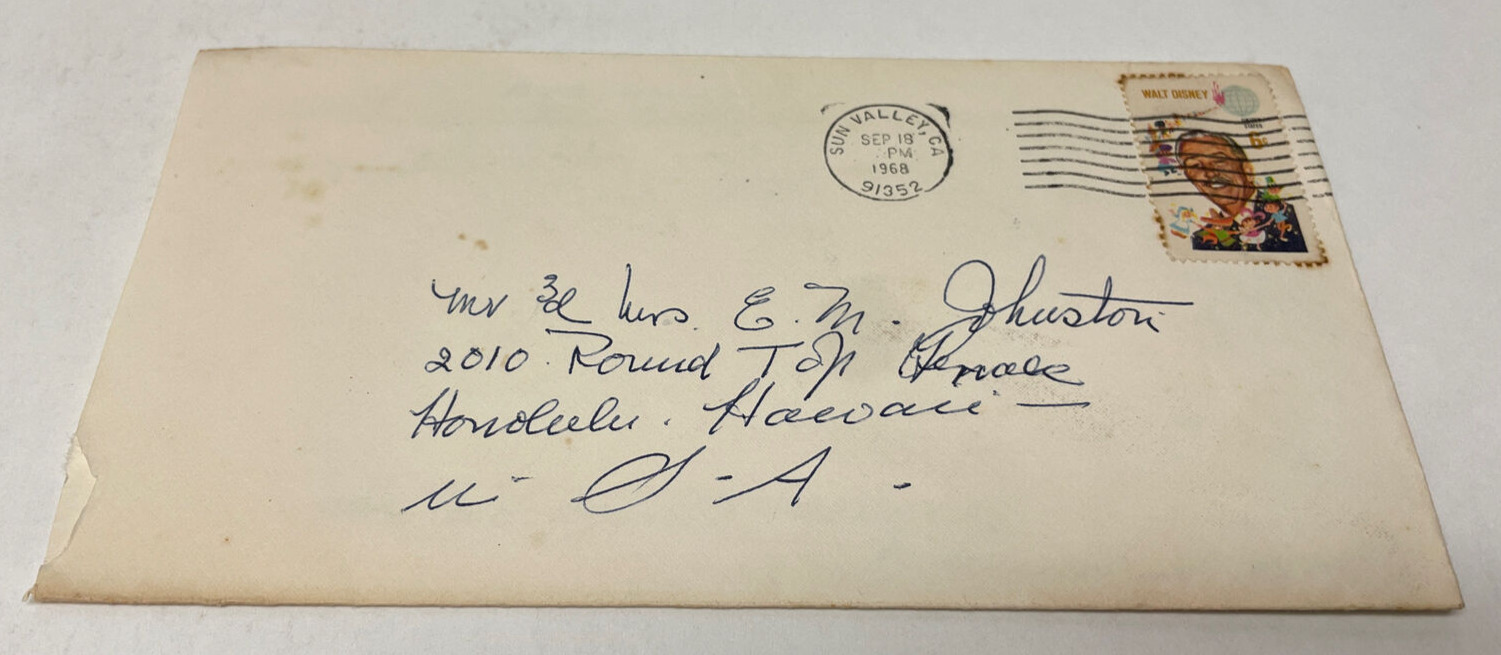 WALT DISNEY
UNITED STATES
6c
SUN VALLEY, CA
SEP 18
PM
1968
91352
Mr & Mrs. E. M. Johnston
2010 Round Top
Honolulu. Hawaii —
U - S - A -